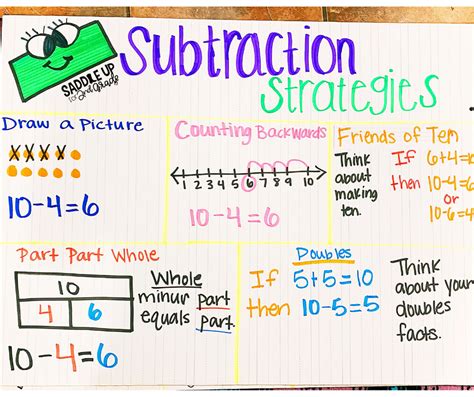 Subtraction
Strategies
SADDLE UP
for 2nd Grade
Draw a Picture
X X X X
10-4=6
Counting Backwards
1 2 3 4 5 6 7 8 9 10
10-4=6
Friends of Ten
Think
about
making
ten.
If 6+4=10
then 10-4=6
or
10-6=4
Part Part Whole
10
4 6
Whole
minus part
equals part.
10-4=6
Doubles
If 5+5=10
then 10-5=5
Think
about your
doubles
facts.